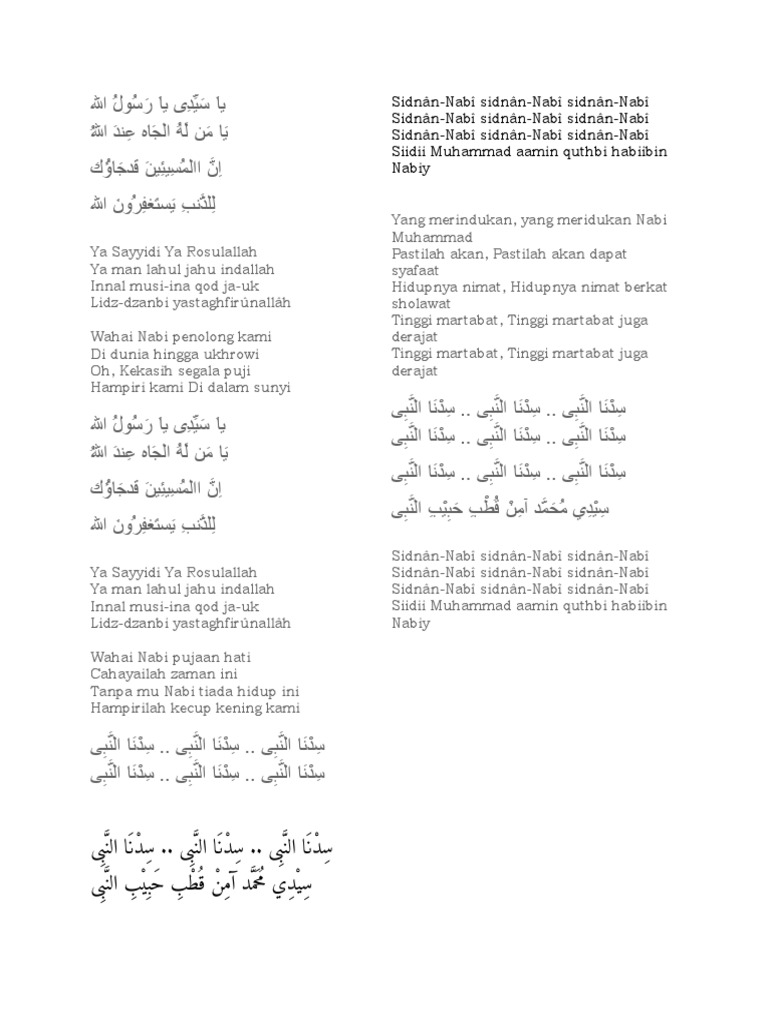 ياَ سَيِّدِى ياَ رَسُولُ الله
يَا مَن لَهُ الْجَاه عِندَ اللهُ
اِنَّ االْمُسِيئِينَ قَدجَاؤُك
لِلذَّنبِ يَستَغفِرُون الله
Ya Sayyidi Ya Rosulallah
Ya man lahul jahu indallah
Innal musi-ina qod ja-uk
Lidz-dzanbi yastaghfirûnallâh
Wahai Nabi penolong kami
Di dunia hingga ukhrowi
Oh, Kekasih segala puji
Hampiri kami Di dalam sunyi
ياَ سَيِّدِى ياَ رَسُولُ الله
يَا مَن لَهُ الْجَاه عِندَ اللهُ
اِنَّ االْمُسِيئِينَ قَدجَاؤُك
لِلذَّنبِ يَستَغفِرُون الله
Ya Sayyidi Ya Rosulallah
Ya man lahul jahu indallah
Innal musi-ina qod ja-uk
Lidz-dzanbi yastaghfirûnallâh
Wahai Nabi pujaan hati
Cahayailah zaman ini
Tanpa mu Nabi tiada hidup ini
Hampirilah kecup kening kami
سِدْنَا النَّبِى .. سِدْنَا النَّبِى .. سِدْنَا النَّبِى
سِدْنَا النَّبِى .. سِدْنَا النَّبِى .. سِدْنَا النَّبِى
سِدْنَا النَّبِى .. سِدْنَا النَّبِى .. سِدْنَا النَّبِى
سِيْدِي مُحَمَّد آمِنْ قُطْبِ حَبِيْبِ النَّبِى
Sidnân-Nabî sidnân-Nabî sidnân-Nabî
Sidnân-Nabî sidnân-Nabî sidnân-Nabî
Sidnân-Nabî sidnân-Nabî sidnân-Nabî
Siidii Muhammad aamin quthbi habiibin
Nabiy
Yang merindukan, yang meridukan Nabi
Muhammad
Pastilah akan, Pastilah akan dapat
syafaat
Hidupnya nimat, Hidupnya nimat berkat
sholawat
Tinggi martabat, Tinggi martabat juga
derajat
Tinggi martabat, Tinggi martabat juga
derajat
سِدْنَا النَّبِى .. سِدْنَا النَّبِى .. سِدْنَا النَّبِى
سِدْنَا النَّبِى .. سِدْنَا النَّبِى .. سِدْنَا النَّبِى
سِدْنَا النَّبِى .. سِدْنَا النَّبِى .. سِدْنَا النَّبِى
سِيْدِي مُحَمَّد آمِنْ قُطْبِ حَبِيْبِ النَّبِى
Sidnân-Nabî sidnân-Nabî sidnân-Nabî
Sidnân-Nabî sidnân-Nabî sidnân-Nabî
Sidnân-Nabî sidnân-Nabî sidnân-Nabî
Siidii Muhammad aamin quthbi habiibin
Nabiy